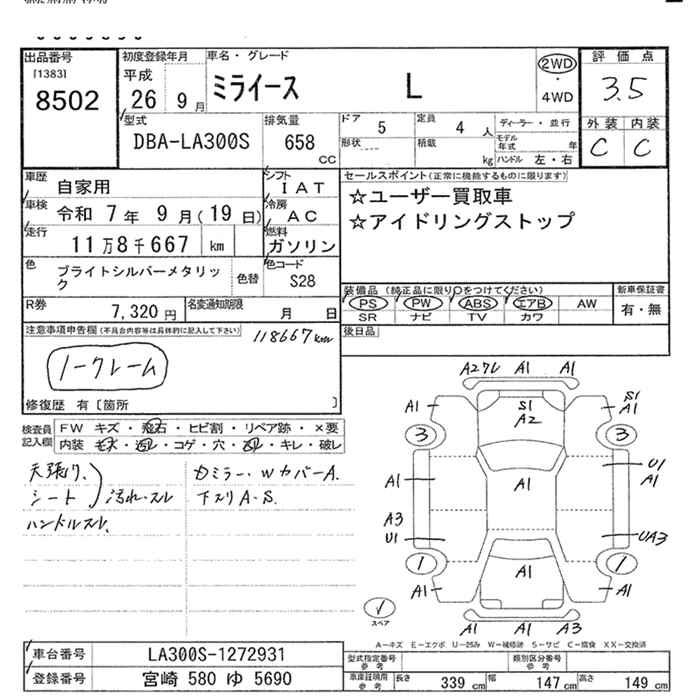 出品番号
[1383]
8502
初度登録年月
平成
26 9 月
車名・グレード
ミライース L
2WD
・
4WD
評価点
3.5
外装 内装
C C
型式
DBA-LA300S
排気量
658
CC
ドア 5
定員 4 人
ディーラー・並行
形状
積載 kg
モデル年式 年
ハンドル 左・右
車歴
自家用
シフト
IAT
セールスポイント(正常に機能するものに限ります)
☆ユーザー買取車
☆アイドリングストップ
車検 令和 7年 9月(19日)
冷房
AC
走行 11万8千667 km
燃料
ガソリン
色
ブライトシルバーメタリック
色替
色コード
S28
装備品(純正品に限り○をつけてください)
PS PW ABS エアB AW
SR ナビ TV カワ
新車保証書
有・無
R券
7,320 円
名変通知期限
月 日
後日品
注意事項申告欄(不具合内容等は具体的に記入して下さい)
118667km
ノークレーム
修復歴 有〔箇所 〕
検査員記入欄
FW キズ・飛石・ヒビ割・リペア跡・×要
内装
コゲ・穴
キレ・破レ
天張り、
シート
汚れ・スレ
ハンドルスレ
カバーA.
下スリA・S.
A2 A1 A1 A3
A1
S1
A2
S1
A1
3 3
A1
A1
U1
A1
A3
U1
UA3
1 1
A1
A1 A1
A3 A1 A1
スペア
A-キズ E-エクボ U-凹み W-補修跡 S-サビ C-腐食 XX-交換済
車台番号 LA300S-1272931
登録番号 宮崎 580 ゆ 5690
型式指定番号
参考
類別区分番号
参考
車庫証明用
参考
長さ 339 cm
幅 147 cm
高さ 149 cm